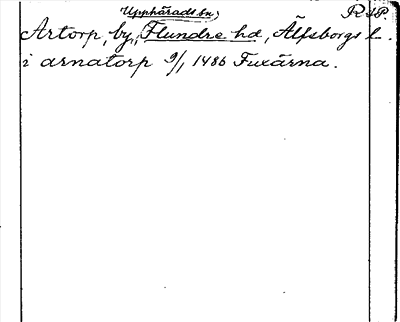 Upphärads sn, RAP.
Artorp, by, Flundre hd, Älfsborgs l.
i arnatorp 9/1 1486 Fuxärna.